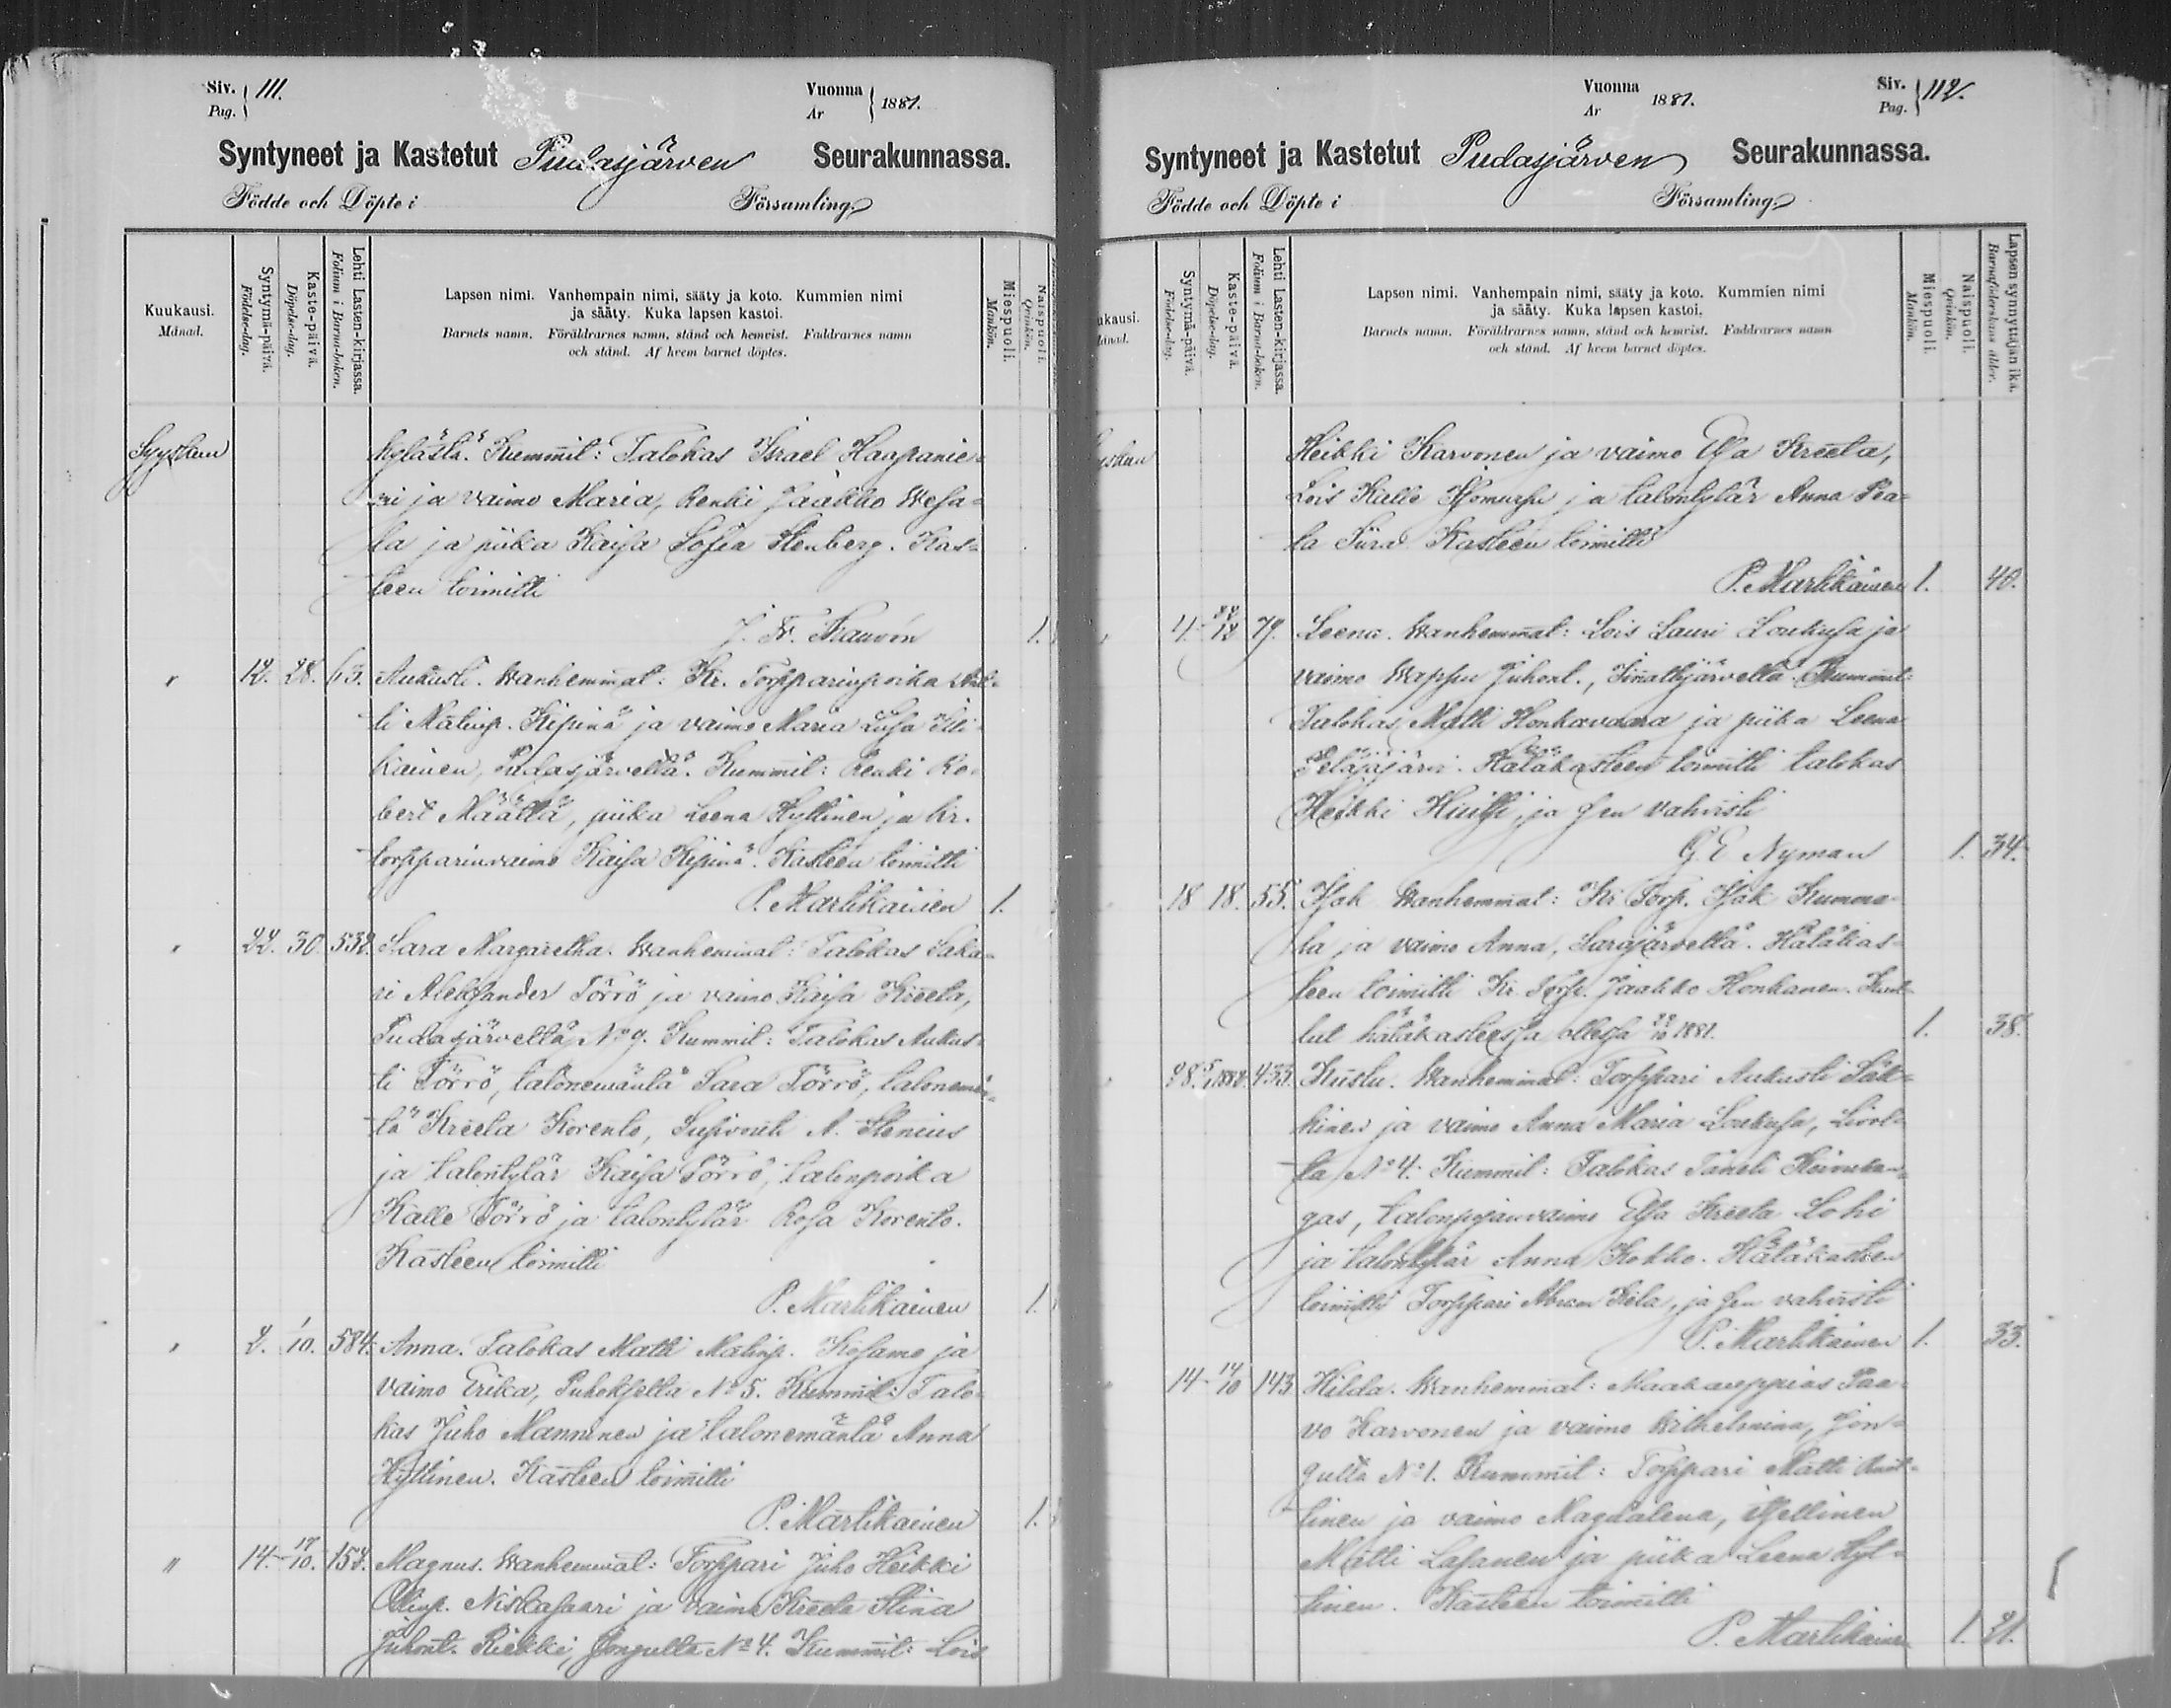 Siv. 111.
Pag.
Vuonna 1881.
Ar
Syntyneet ja Kastetut Pudasjärven Seurakunnassa.
Födde och Döpte i Församling.
Kuukausi.
Månad.
Syntymä-päivä.
Födelse-dag.
Kaste-päivä.
Döpelse-dag.
Lehti Lasten-kirjassa.
Folium i Barna-boken.
Lapsen nimi. Vanhempain nimi, sääty ja koto. Kummien nimi
ja sääty. Kuka lapsen kastoi.
Barnets namn. Föräldrarnes namn, stånd och hemvist. Faddrarnes namn
och stånd. Af hvem barnet döptes.
Miespuoli.
Mankön.
Naispuoli.
Qvinkön.
Syyskuu kylästä. Kummit: Talokas Israel Haapanie-
mi ja vaimo Maria, Renki Jaakko Wesa-
la ja piika Kaisa Sofia Stenberg. Kas-
teen toimitti
J. Fr. 1.
12. 28. 63. Aukusti. Wanhemmat: Kr. Torpparinpoika Ant-
ti Matinp. Kipinä ja vaimo Maria Liisa Illi-
kainen, Pudasjärveltä. Kummit: Renki Ro-
bert Määttä, piika Leena Hyttinen ja kr.
torpparinvaimo Kaisa Kipinä. Kasteen toimitti
P. Martikainen 1.
22. 30. 532. Sara Margaretha. Wanhemmat: Talokas Saka-
ri Aleksander Törrö ja vaimo Kaisa Kreeta,
Pudasjärveltä No 9. Kummit: Talokas Aukus-
ti Törrö, talonemäntä Sara Törrö, talonemän-
tä Kreeta Korento, A. Stenius
ja talontytär Kaisa Törrö, talonpoika
Kalle Törrö ja talontytär Rosa Korento.
Kasteen toimitti
P. Martikainen 1.
2. 1/10. 584. Anna. Talokas Matti Matinp. Kosamo ja
vaimo Erika, Puhokselta No 5. Kummit: Talo-
kas Juho Manninen ja talonemäntä Anna
Hyttinen. Kasteen toimitti
P. Martikainen 1.
" 14. 17/10. 152. Magnus. Wanhemmat: Torppari Juho Heikki
Ollinp. Niskasaari ja vaimo Kreeta Stina
Juhont. Riekki, Jongulta No 4. Kummit: Lois
Vuonna 1881.
Ar
Siv. 112.
Pag.
Syntyneet ja Kastetut Pudasjärven Seurakunnassa.
Födde och Döpte i Församling.
ukausi.
Månad.
Syntymä-päivä.
Födelse-dag.
Kaste-päivä.
Döpelse-dag.
Lehti Lasten-kirjassa.
Folium i Barna-boken.
Lapsen nimi. Vanhempain nimi, sääty ja koto. Kummien nimi
ja sääty. Kuka lapsen kastoi.
Barnets namn. Föräldrarnes namn, stånd och hemvist. Faddrarnes namn
och stånd. Af hvem barnet döptes.
Miespuoli.
Mankön.
Naispuoli.
Qvinkön.
Lapsen synnyttäjän ikä.
Barnaföderskans ålder.
Heikki Karvonen ja vaimo Elsa Kreeta,
Lois Kalle ja talontytär Anna Pea-
ta Siira. Kasteen toimitti
P. Martikainen 1. 40.
4. 79. Leena. Wanhemmat: Lois Lauri Loukusa ja
vaimo Wappu Juhont., Kummit:
Talokas Matti Honkavaara ja piika Leena
Hätäkasteen toimitti talokas
Heikki ja sen vahvisti
G. E. Nyman 1. 34.
18 18. 55. Isak Wanhemmat: Kr Torp. Isak Kumma-
la ja vaimo Anna, Sarajärveltä. Hätäkas-
teen toimitti Kr. Torp. Jaakko Honkanen. Kuol-
lut hätäkasteessa ollessa 22/10 1881. 1. 38.
28. 433. Kustu. Wanhemmat: Torppari Aukusti Säk-
kinen ja vaimo Anna Maria Loukusa, Livol-
ta No 4. Kummit: Talokas Taneli Koivukan-
gas, talonpojanvaimo Elsa Kreeta Lohi
ja talontytär Anna Kokko. Hätäkasteen
toimitti Torppari Abram Kela, ja sen vahvisti
P. Martikainen 1. 33.
14 14/10 143 Hilda. Wanhemmat: Maakauppias Paa-
vo Karvonen ja vaimo Wilhelmina, Jon-
gulta No 1. Kummit: Torppari Matti
tinen ja vaimo Magdalena, itsellinen
Matti Lasanen ja piika Leena Hyt-
tinen. Kasteen toimitti
P. Martikainen 1. 21.